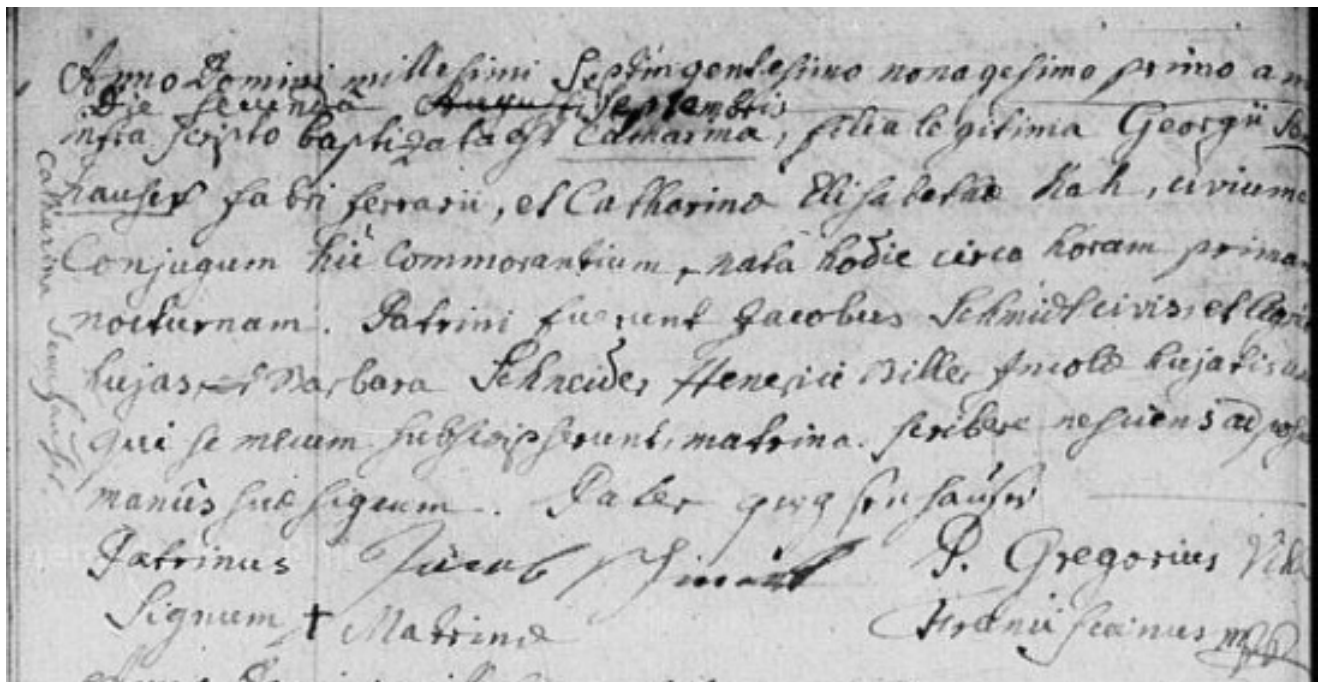 Anno Domini millesimi Septingentesimo nonagesimo primo a me
Die secunda Augusti Septembris
infra scripto baptizata est Catharina, filia legitima Georgii Sen
hauser fabri ferrarii, et Catharinæ Elisabethæ Kah, civium
Conjugum hic Commorantium, nata hodie circa horam primam
nocturnam. Patrini fuerunt Jacobus Schmidt civis, et
hujas, et Barbara Schneider Henerici Biller Incolæ hujatis
qui se mecum subscripserunt, matrina scribere nesciens
manûs suæ signum. Pater
Patrinus Jacob Schmidt P. Gregorius
Signum + Matrinæ Franciscanus
Catharina